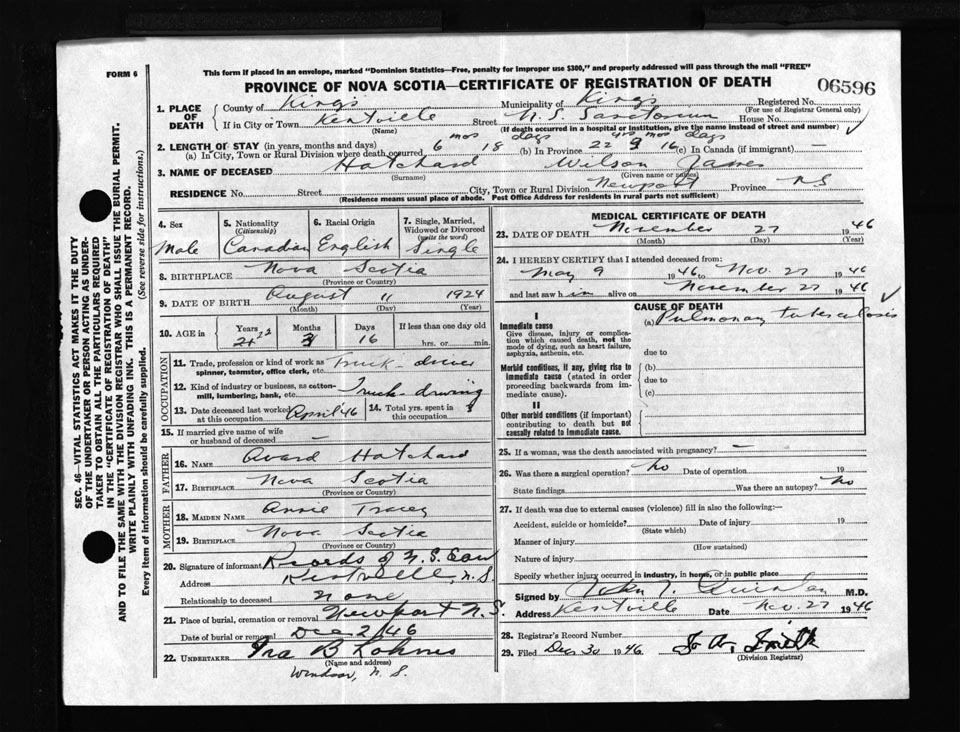 FORM 6
This form if placed in an envelope, marked "Dominion Statistics—Free, penalty for improper use $300," and properly addressed will pass through the mail "FREE"
PROVINCE OF NOVA SCOTIA—CERTIFICATE OF REGISTRATION OF DEATH
06596
1. PLACE OF DEATH
County of Kings Municipality of Kings Registered No.
(For use of Registrar General only)
If in City or Town Kentville Street N.S. Sanatorium House No.
(Name) (If death occurred in a hospital or institution, give the name instead of street and number)
2. LENGTH OF STAY (in years, months and days)
(a) In City, Town or Rural Division where death occurred 6 mos 18 days (b) In Province 22 yrs 3 mos 16 days (c) In Canada (if immigrant) —
3. NAME OF DECEASED Hatchard Wilson James
(Surname) (Given name or names)
RESIDENCE No. Street City, Town or Rural Division Newport Province NS
(Residence means usual place of abode. Post Office Address for residents in rural parts not sufficient)
4. Sex
Male
5. Nationality
(Citizenship)
Canadian
6. Racial Origin
English
7. Single, Married, Widowed or Divorced
(write the word)
Single
8. BIRTHPLACE Nova Scotia
(Province or Country)
9. DATE OF BIRTH August 11 1924
(Month) (Day) (Year)
10. AGE in
Years 22
Months 3
Days 16
If less than one day old
hrs. or min.
OCCUPATION
11. Trade, profession or kind of work as spinner, teamster, office clerk, etc. Truck-driver
12. Kind of industry or business, as cotton-mill, lumbering, bank, etc. Truck-driving
13. Date deceased last worked at this occupation April '46
14. Total yrs. spent in this occupation 3
15. If married give name of wife or husband of deceased —
FATHER
16. NAME Avard Hatchard
17. BIRTHPLACE Nova Scotia
(Province or Country)
MOTHER
18. MAIDEN NAME Annie Tracey
19. BIRTHPLACE Nova Scotia
(Province or Country)
20. Signature of informant Records of N.S. San
Address Kentville, N.S.
Relationship to deceased None
21. Place of burial, cremation or removal Newport N.S.
Date of burial or removal Dec 2/46
22. UNDERTAKER Ira B Lohnes
(Name and address)
Windsor, N. S.
MEDICAL CERTIFICATE OF DEATH
23. DATE OF DEATH November 27 1946
(Month) (Day) (Year)
24. I HEREBY CERTIFY that I attended deceased from:
May 9 1946 to Nov. 27 1946
and last saw h im alive on November 27 1946
CAUSE OF DEATH
I
Immediate cause
Give disease, injury or complication which caused death, not the mode of dying, such as heart failure, asphyxia, asthenia, etc.
(a) Pulmonary tuberculosis
due to
Morbid conditions, if any, giving rise to immediate cause (stated in order proceeding backwards from immediate cause).
(b)
due to
(c)
II
Other morbid conditions (if important) contributing to death but not causally related to immediate cause.
25. If a woman, was the death associated with pregnancy? —
26. Was there a surgical operation? no Date of operation 19
State findings Was there an autopsy? no
27. If death was due to external causes (violence) fill in also the following:—
Accident, suicide or homicide? Date of injury 19
(State which)
Manner of injury
(How sustained)
Nature of injury
Specify whether injury occurred in industry, in home, or in public place
Signed by John J. Quinlan M.D.
Address Kentville Date Nov. 27 1946
28. Registrar's Record Number
29. Filed Dec 30 1946
Smith
(Division Registrar)
SEC. 46—VITAL STATISTICS ACT MAKES IT THE DUTY
OF THE UNDERTAKER OR PERSON ACTING AS UNDER-
TAKER TO OBTAIN ALL THE PARTICULARS REQUIRED
IN THE "CERTIFICATE OF REGISTRATION OF DEATH"
AND TO FILE THE SAME WITH THE DIVISION REGISTRAR WHO SHALL ISSUE THE BURIAL PERMIT.
WRITE PLAINLY WITH UNFADING INK. THIS IS A PERMANENT RECORD.
Every item of information should be carefully supplied. (See reverse side for instructions.)